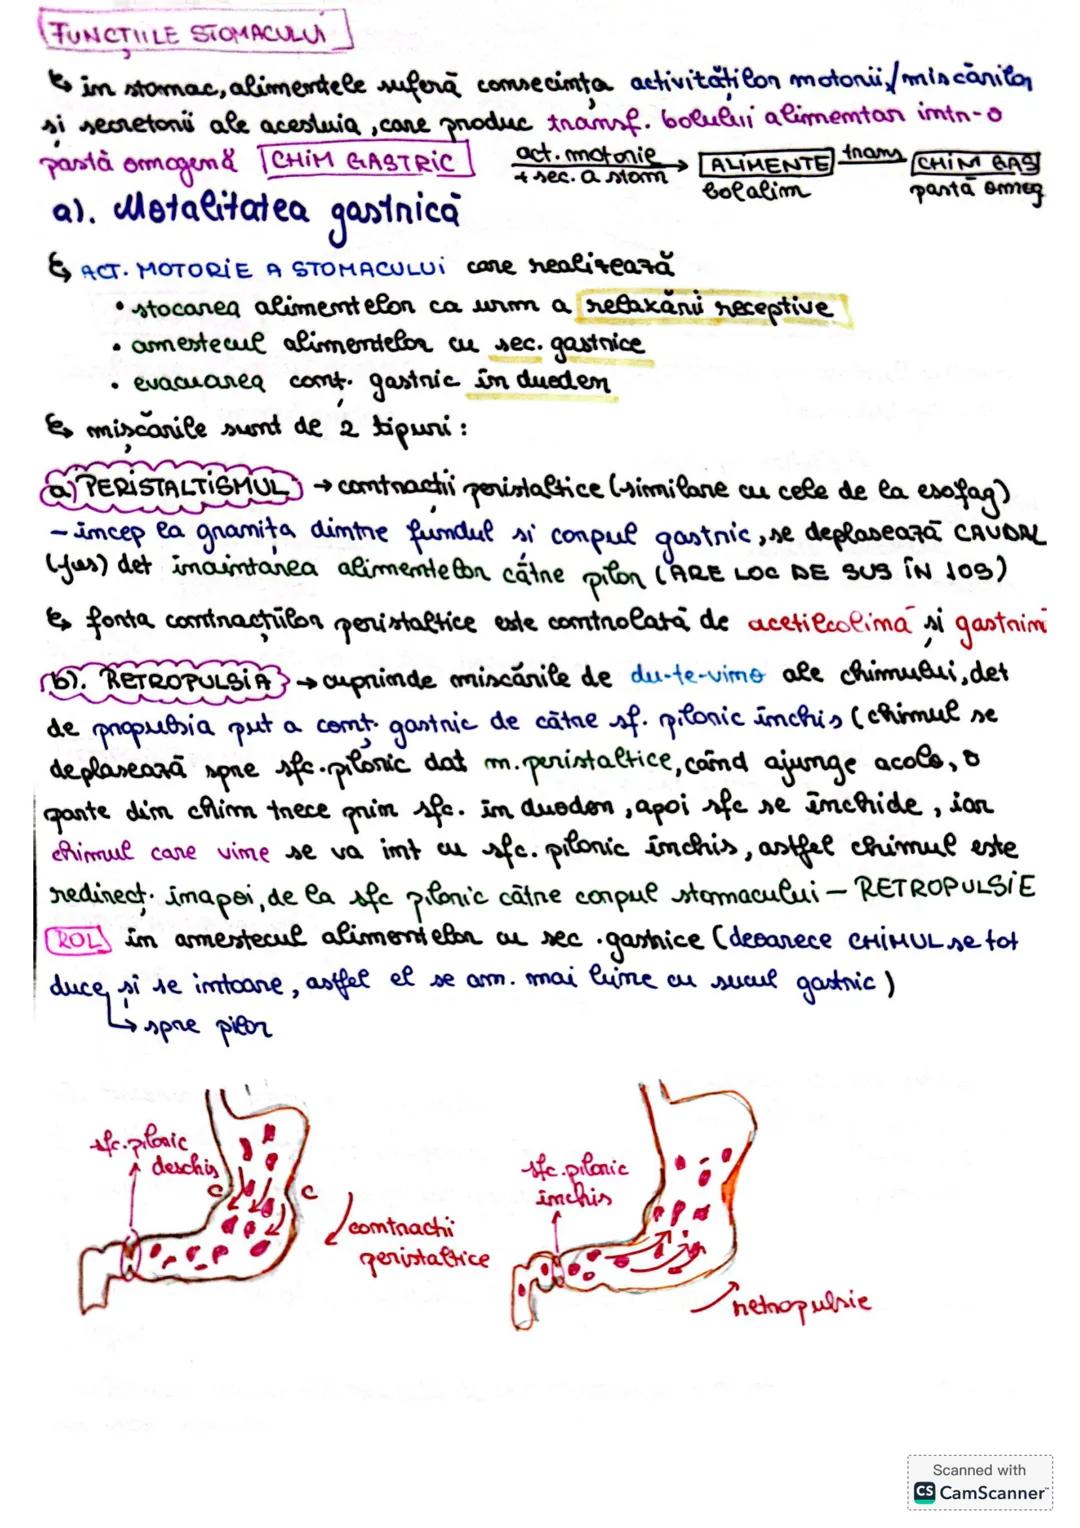 FUNCȚIILE STOMACULUI
în stomac, alimentele suferă consecința activităților motorii/miscărilor
si secretorii ale acestuia, care produc transf. bolului alimentar intr-o
pastă omogenă CHIM GASTRIC
act. motorie
+ sec. a stom
ALIMENTE
bolalim
trans
CHIM GAS
pastă omog
a). Motalitatea gastrică
ACT. MOTORIE A STOMACULUI care realizează
• stocarea alimentelor ca urm a relaxării receptive
• amestecul alimentelor cu sec. gastrice
• evacuarea conț. gastric în duoden
mișcările sunt de 2 tipuri:
a) PERISTALTISMUL → contracții peristaltice (similare cu cele de la esofag)
- incep la granița dintre fundul și corpul gastric, se deplasează CAUDAL
(jus) det inaintarea alimentelor către pilor (ARE LOC DE SUS ÎN JOS)
forta contracțiilor peristaltice este controlată de acetilcolină și gastrină
b). RETROPULSIA → cuprinde miscările de du-te-vino ale chimului, det
de propulsia put a conț. gastric de către sf. piloric închis (chimul se
deplasează spre sfc. piloric dat m. peristaltice, când ajunge acolo, o
parte din chim trece prin sfc. în duoden, apoi sfc se închide, iar
chimul care vine se va int cu sfc. piloric închis, astfel chimul este
redirecț. înapoi, de la sfc piloric către corpul stomacului - RETROPULSIE
ROL în amestecul alimentelor cu sec. gastrice (deoarece CHIMUL se tot
duce și se intoarce, astfel el se am. mai bine cu sucul gastric)
↳ spre pilor
sfc. piloric
deschis
C
C
contractii
peristaltice
sfc. piloric
închis
retropulsie
Scanned with
CS CamScanner